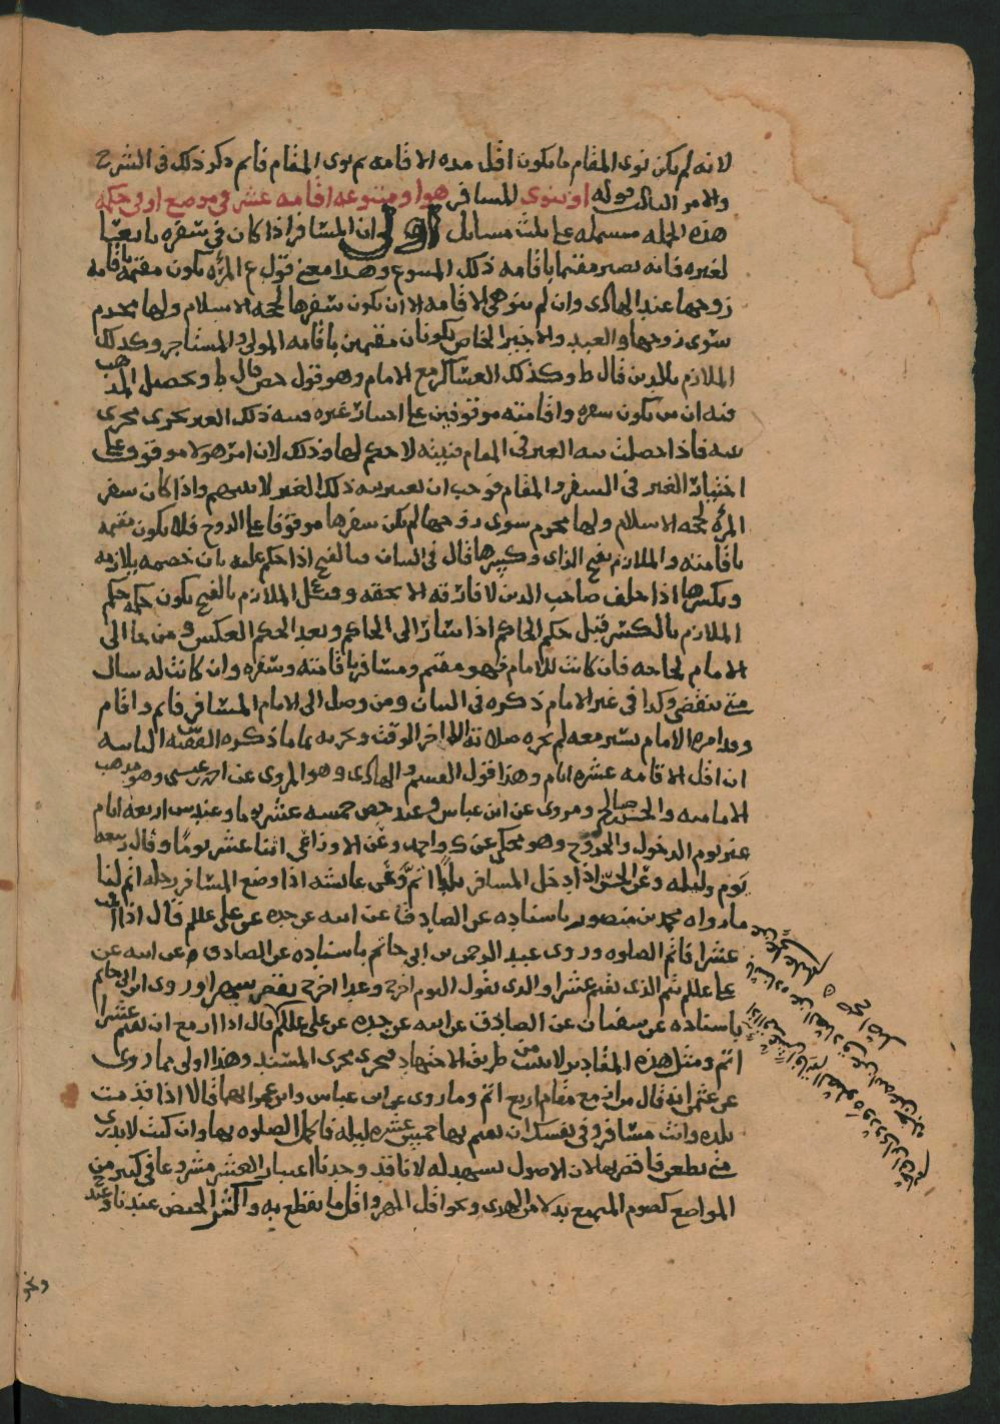 لانه لم يكن نوى المقام ما يكون اقل مده الاقامه ثم نوى المقام فانه ذكر ذلك في الشرح
والامر الثالث قوله او ينوى المسافر هو او متبوعه اقامه عشر في موضع اولى حكمه
هذه الجمله مشتمله على ثلث مسايل الاولى ان المسافر اذا كان في سفره تابعا
لغيره فانه يصير مقيما باقامه ذلك المتبوع وهذا معنى قول ع المرأه تكون مقيمه باقامه
زوجها عند الهادى وان لم تنو هي الاقامه الا ان يكون سفرها لحجه الاسلام ولها محرم
سوى زوجها والعبد والاجير الخاص يكونان مقيمين باقامه المولى والمستاجر وكذلك
الملازم بالدين قال ط وكذلك العساكر مع الامام وهو قول حص قال ط وتحصيل المذهب
فيه ان من يكون سفره واقامته موقوفين على اختيار غيره فنيه ذلك الغير تجرى مجرى
نيته فاذا حصلت نيه الغير في المقام فنيته لا حكم لها وذلك لان امر هولا موقوف على
اختيار الغير في السفر والمقام فوجب ان تعتبر نيه ذلك الغير لا نيتهم واذا كان سفر
المرأه لحجه الاسلام ولها محرم سوى زوجها لم يكن سفرها موقوفا على الزوج فلا تكون مقيمه
باقامته والملازم بفتح الزاى وكسرها قال في البيان فبالفتح اذا حكم عليه بان خصمه يلازمه
وبكسرها اذا حلف صاحب الدين لا فارقه الا بحقه وقيل الملازم بالفتح يكون حكمه حكم
الملازم بالكسر قبل حكم الحاكم اذا سار الى الحاكم وبعد الحكم العكس ومن جا الى
الامام لحاجه فان كانت للامام فهو مقيم ومسافر باقامته وسفره وان كانت له سال
متى تنقضى وكذا في غير الامام ذكره في البيان ومن وصل الى الامام المسافر فاتم واقام
وقد امره الامام يسير معه لم يجزه صلاته الا اخر الوقت ويجزيه تماما ذكره الفقيه الثانيه
ان اقل الاقامه عشره ايام وهذا قول القسم والهادى وهو المروى عن احمد بن عيسى وهو مذهب
الاماميه والحسن بن صالح ومروى عن ابن عباس وعند حص خمسه عشر يوما وعند ش اربعه ايام
غير يوم الدخول والخروج وهو محكى عن ك واحمد وعن الاوزاعى اثنا عشر يوما وقال ربيعه
يوم وليله وعن الحسن اذا دخل المسافر بلدا اتم وعن عائشه اذا وضع المسافر رحله اتم لنا
ما رواه محمد بن منصور باسناده عن الصادق عن ابيه عن جده عن على علم قال اذا اقمت
عشرا فاتم الصلوه وروى عبد الرحمن بن ابى حاتم باسناده عن الصادق عن ابيه عن
على علم يتم الذى يقيم عشرا والذى يقول اليوم اخرج وغدا اخرج يقصر شهرا وروى ابن ابى حاتم
باسناده عن سفيان عن الصادق عن ابيه عن جده عن على علم قال اذا ازمع ان يقيم عشرا
اتم ومثل هذه المقادير لا تثبت من طريق الاجتهاد فتجرى مجرى المسند وهذا اولى مما روى
عن عثمن انه قال من ازمع مقام اربع اتم وما روى عن ابن عباس وابن عمر انهما قالا اذا قدمت
بلده وانت مسافر وفي نفسك ان تقيم بها خمس عشره ليله فاكمل الصلوه بها وان كنت لا تدرى
متى تظعن فاقصرها لان الاصول تشهد له لانا قد وجدنا اعتبار العشر مشروعا في كثير من
المواضع كصوم المتمتع بدلا من الهدى ونحو اقل المهر واقل ما يقطع به واكثر الحيض عندنا وعند